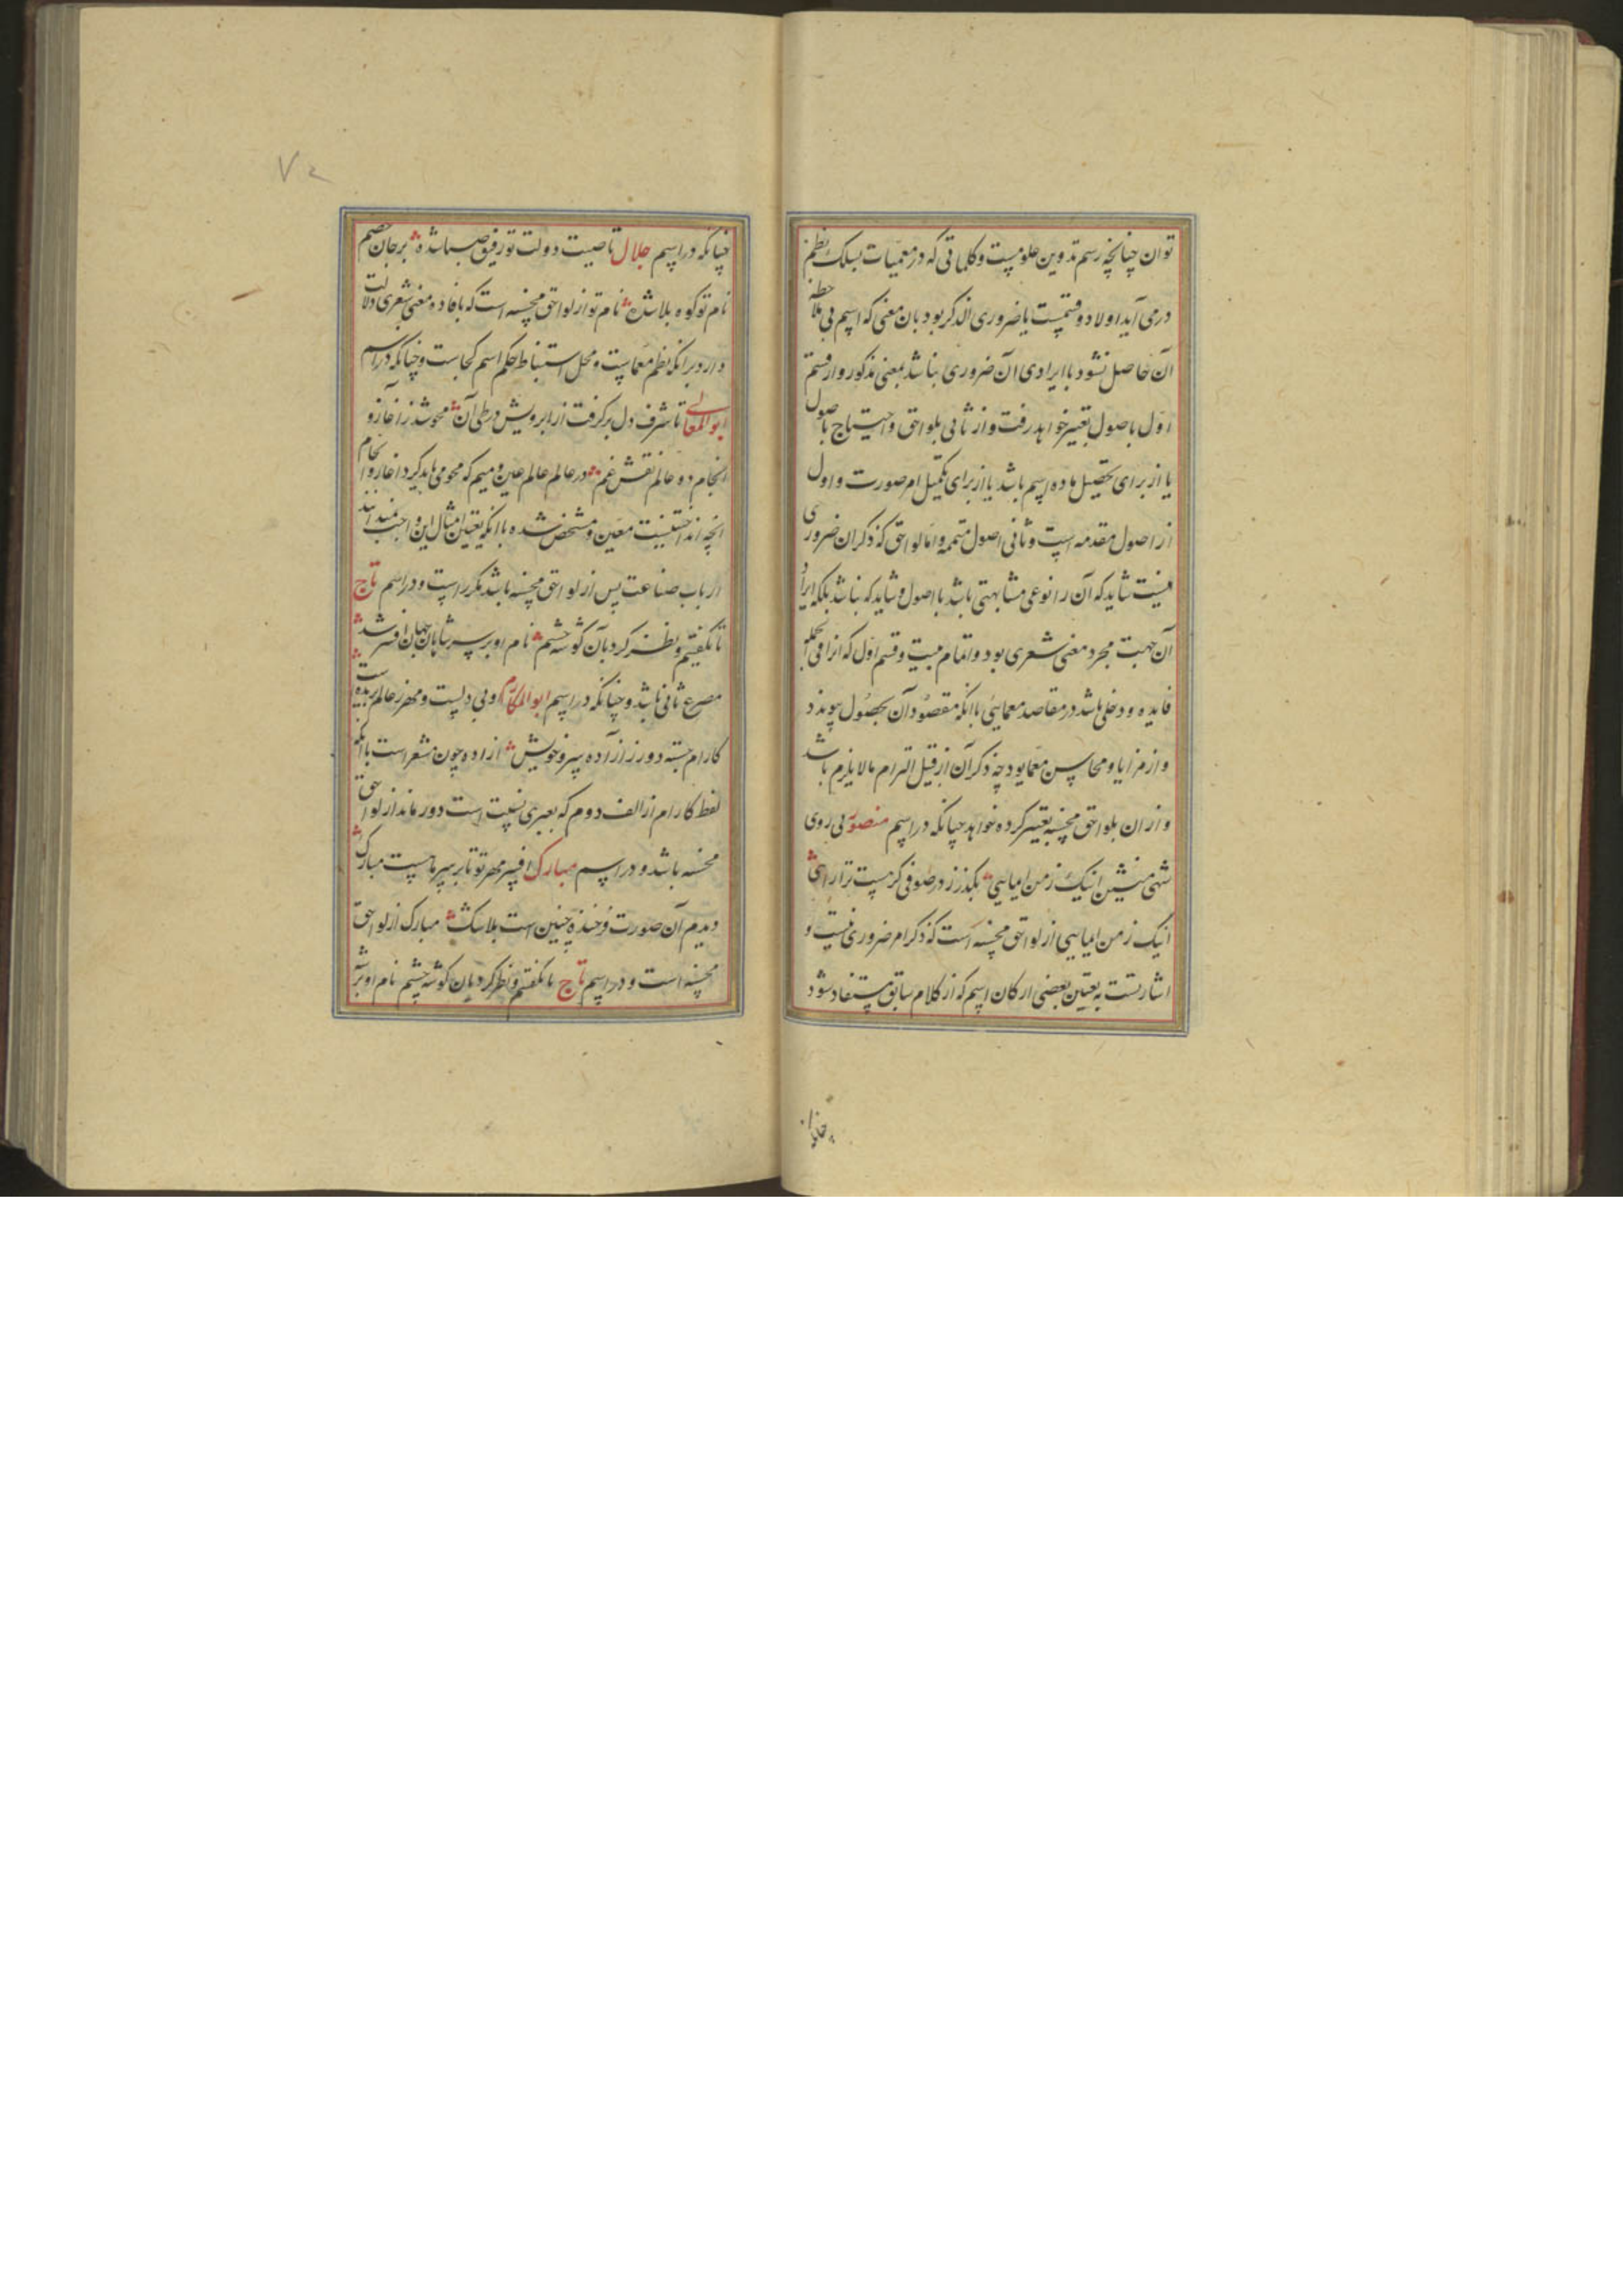 توان چنانچه رسم تدوین علومست و کلماتی که در معمیات بسلک نظم
در می آید اولا دو قسمست یا ضروری الذکر بود بان معنی که اسم بی ملاحظه
آن حاصل نشود یا ایرادی آن ضروری نباشد بمعنی مذکور و از قسم
اول باصول تعبیر خواهد رفت و از ثانی بلواحق و احتیاج باصول
یا از برای تحصیل ماده اسم باشد یا از برای تکمیل امر صورت و اول
از اصول مقدمه است و ثانی اصول متممه و اما لواحق که ذکر ان ضروری
نیست شاید که آن را نوعی مشابهتی باشد با اصول و شاید که نباشد بلکه ایراد
آن جهت مجرد معنی شعری بود و اتمام بیت و قسم اول که انرا فی الجمله
فایده و دخلی باشد در مقاصد معمایئ با انکه مقصود آن بحصول پیوندد
و از مزایا و محاسن معما بود چه ذکر آن از قبیل التزام مالا یلزم باشد
و از ان بلواحق محسنه تعبیر کرده خواهد چنانکه در اسم منصور بی روی
شهی منشین اینک ز من ایمایی بگذر ز در صوفی گر هست ترا راهی
اینک ز من ایمایی از لواحق محسنه است که ذکرا مر ضروری نیست و
اشارتست به تعیین بعضی ارکان اسم که از کلام سابق مستفاد شود
چنانکه
چنانکه در اسم جلال تا صیت دولت تو رفیق صبا شده بر جان خصم
نام تو کوه بلا شده نام تو از لواحق محسنه است که با فاده معنی شعری دلالت
دارد برانکه نظم معماست و محل استنباط حکم اسم کجاست و چنانکه در اسم
ابو المعالی تا شرف دل بر گرفت از ابرویش در طی آن محو شد ز آغاز و
انجام دو عالم نقش غم در عالم عالم عین و میم که محو می باید کرد اغاز و انجام
انچه اند اختنیست معین و مشخص شده با انکه تعیین امثال این واجب نمیدانند
ارباب صناعت پس از لواحق محسنه باشد مکرر است و در اسم تاج
تا گفتیم و نظر کرد بآن گوشه چشم نام او بر سر شاهان جهان افسر شد
مصرع ثانی باشد و چنانکه در اسم ابو المکارم و بی دلست و مهر ز عالم بریده است
کارام جسته دور ز آزاده پیر و خویش ازاده چون مشعر است با انکه
لفظ کارام از الف دوم که بعبری نسبت است دور ماند از لواحق
محسنه باشد و در اسم مبارک افسر مهر تو تا بر سر ماست مبارک
دیدم آن صورت فرخنده چنین است بلا شک مبارک از لواحق
محسنه است و در اسم تاج تا گفتیم و نظر کرد بان گوشه چشم نام او بر